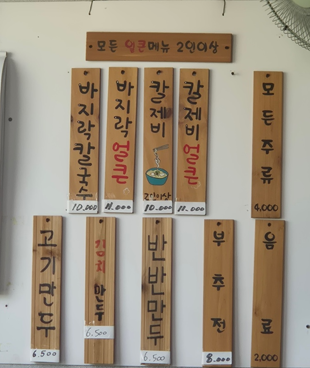 모든 얼큰메뉴 2인이상
바지락칼국수
10,000
바지락 얼큰
11.000
칼제비
2인이상
10.000
칼제비 얼큰
11.000
모든주류
4,000
고기만두
6.500
김치만두
6.500
반반만두
6.500
부추전
8.000
음료
2,000